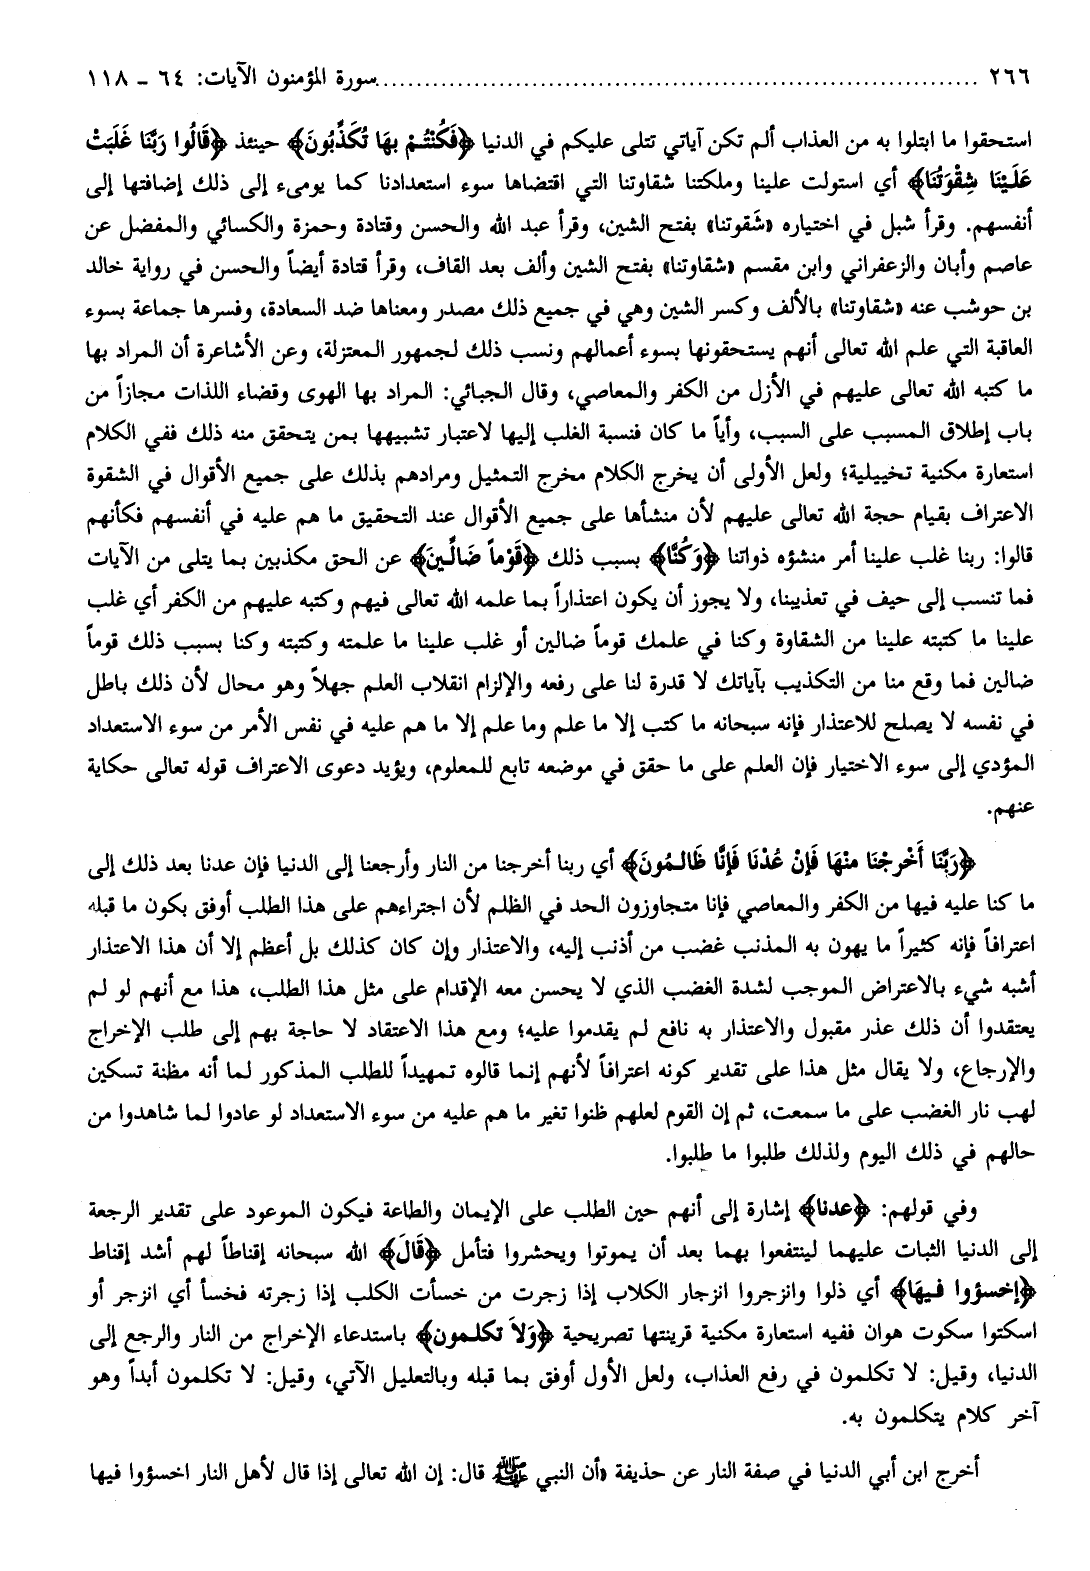 ٢٦٦ ................................................................ سورة المؤمنون الآيات: ٦٤ ـ ١١٨
استحقوا ما ابتلوا به من العذاب ألم تكن آياتي تتلى عليكم في الدنيا ﴿فَكُنْتُمْ بِهَا تُكَذِّبُونَ﴾ حينئذ ﴿قَالُوا رَبَّنَا غَلَبَتْ
عَلَيْنَا شِقْوَتُنَا﴾ أي استولت علينا وملكتنا شقاوتنا التي اقتضاها سوء استعدادنا كما يومىء إلى ذلك إضافتها إلى
أنفسهم. وقرأ شبل في اختياره «شَقوتنا» بفتح الشين، وقرأ عبد الله والحسن وقتادة وحمزة والكسائي والمفضل عن
عاصم وأبان والزعفراني وابن مقسم «شقاوتنا» بفتح الشين وألف بعد القاف، وقرأ قتادة أيضاً والحسن في رواية خالد
بن حوشب عنه «شقاوتنا» بالألف وكسر الشين وهي في جميع ذلك مصدر ومعناها ضد السعادة، وفسرها جماعة بسوء
العاقبة التي علم الله تعالى أنهم يستحقونها بسوء أعمالهم ونسب ذلك لجمهور المعتزلة، وعن الأشاعرة أن المراد بها
ما كتبه الله تعالى عليهم في الأزل من الكفر والمعاصي، وقال الجبائي: المراد بها الهوى وقضاء اللذات مجازاً من
باب إطلاق المسبب على السبب، وأياً ما كان فنسبة الغلب إليها لاعتبار تشبيهها بمن يتحقق منه ذلك ففي الكلام
استعارة مكنية تخييلية؛ ولعل الأولى أن يخرج الكلام مخرج التمثيل ومرادهم بذلك على جميع الأقوال في الشقوة
الاعتراف بقيام حجة الله تعالى عليهم لأن منشأها على جميع الأقوال عند التحقيق ما هم عليه في أنفسهم فكأنهم
قالوا: ربنا غلب علينا أمر منشؤه ذواتنا ﴿وَكُنَّا﴾ بسبب ذلك ﴿قَوْماً ضَالِّينَ﴾ عن الحق مكذبين بما يتلى من الآيات
فما تنسب إلى حيف في تعذيبنا، ولا يجوز أن يكون اعتذاراً بما علمه الله تعالى فيهم وكتبه عليهم من الكفر أي غلب
علينا ما كتبته علينا من الشقاوة وكنا في علمك قوماً ضالين أو غلب علينا ما علمته وكتبته وكنا بسبب ذلك قوماً
ضالين فما وقع منا من التكذيب بآياتك لا قدرة لنا على رفعه والإلزام انقلاب العلم جهلاً وهو محال لأن ذلك باطل
في نفسه لا يصلح للاعتذار فإنه سبحانه ما كتب إلا ما علم وما علم إلا ما هم عليه في نفس الأمر من سوء الاستعداد
المؤدي إلى سوء الاختيار فإن العلم على ما حقق في موضعه تابع للمعلوم، ويؤيد دعوى الاعتراف قوله تعالى حكاية
عنهم.
﴿رَبَّنَا أَخْرِجْنَا مِنْهَا فَإِنْ عُدْنَا فَإِنَّا ظَالِمُونَ﴾ أي ربنا أخرجنا من النار وأرجعنا إلى الدنيا فإن عدنا بعد ذلك إلى
ما كنا عليه فيها من الكفر والمعاصي فإنا متجاوزون الحد في الظلم لأن اجتراءهم على هذا الطلب أوفق بكون ما قبله
اعترافاً فإنه كثيراً ما يهون به المذنب غضب من أذنب إليه، والاعتذار وإن كان كذلك بل أعظم إلا أن هذا الاعتذار
أشبه شيء بالاعتراض الموجب لشدة الغضب الذي لا يحسن معه الإقدام على مثل هذا الطلب، هذا مع أنهم لو لم
يعتقدوا أن ذلك عذر مقبول والاعتذار به نافع لم يقدموا عليه؛ ومع هذا الاعتقاد لا حاجة بهم إلى طلب الإخراج
والإرجاع، ولا يقال مثل هذا على تقدير كونه اعترافاً لأنهم إنما قالوه تمهيداً للطلب المذكور لما أنه مظنة تسكين
لهب نار الغضب على ما سمعت، ثم إن القوم لعلهم ظنوا تغير ما هم عليه من سوء الاستعداد لو عادوا لما شاهدوا من
حالهم في ذلك اليوم ولذلك طلبوا ما طلبوا.
وفي قولهم: ﴿عدنا﴾ إشارة إلى أنهم حين الطلب على الإيمان والطاعة فيكون الموعود على تقدير الرجعة
إلى الدنيا الثبات عليهما لينتفعوا بهما بعد أن يموتوا ويحشروا فتأمل ﴿قَالَ﴾ الله سبحانه إقناطاً لهم أشد إقناط
﴿إخسؤوا فيهَا﴾ أي ذلوا وانزجروا انزجار الكلاب إذا زجرت من خسأت الكلب إذا زجرته فخسأ أي انزجر أو
اسكتوا سكوت هوان ففيه استعارة مكنية قرينتها تصريحية ﴿وَلاَ تكلمون﴾ باستدعاء الإخراج من النار والرجع إلى
الدنيا، وقيل: لا تكلمون في رفع العذاب، ولعل الأول أوفق بما قبله وبالتعليل الآتي، وقيل: لا تكلمون أبداً وهو
آخر كلام يتكلمون به.
أخرج ابن أبي الدنيا في صفة النار عن حذيفة «أن النبي ﷺ قال: إن الله تعالى إذا قال لأهل النار اخسؤوا فيها